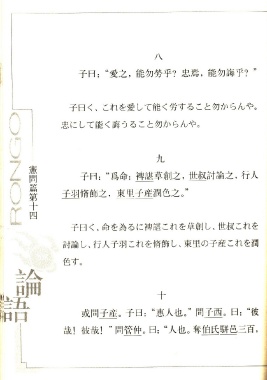 八
子曰:“愛之,能勿勞乎?忠焉,能勿誨乎?”
子曰く、これを愛して能く労すること勿からんや。
忠にして能く誨うること勿からんや。
九
子曰:“爲命:裨諶草創之,世叔討論之,行人
子羽脩飾之,東里子産潤色之。”
子曰く、命を為るに裨諶これを草創し、世叔これを
討論し、行人子羽これを脩飾し、東里の子産これを潤
色す。
十
或問子産。子曰:“惠人也。”問子西。曰:“彼
哉!彼哉!”問管仲。曰:“人也。奪伯氏駢邑三百,
RONGO
憲問篇第十四
論語